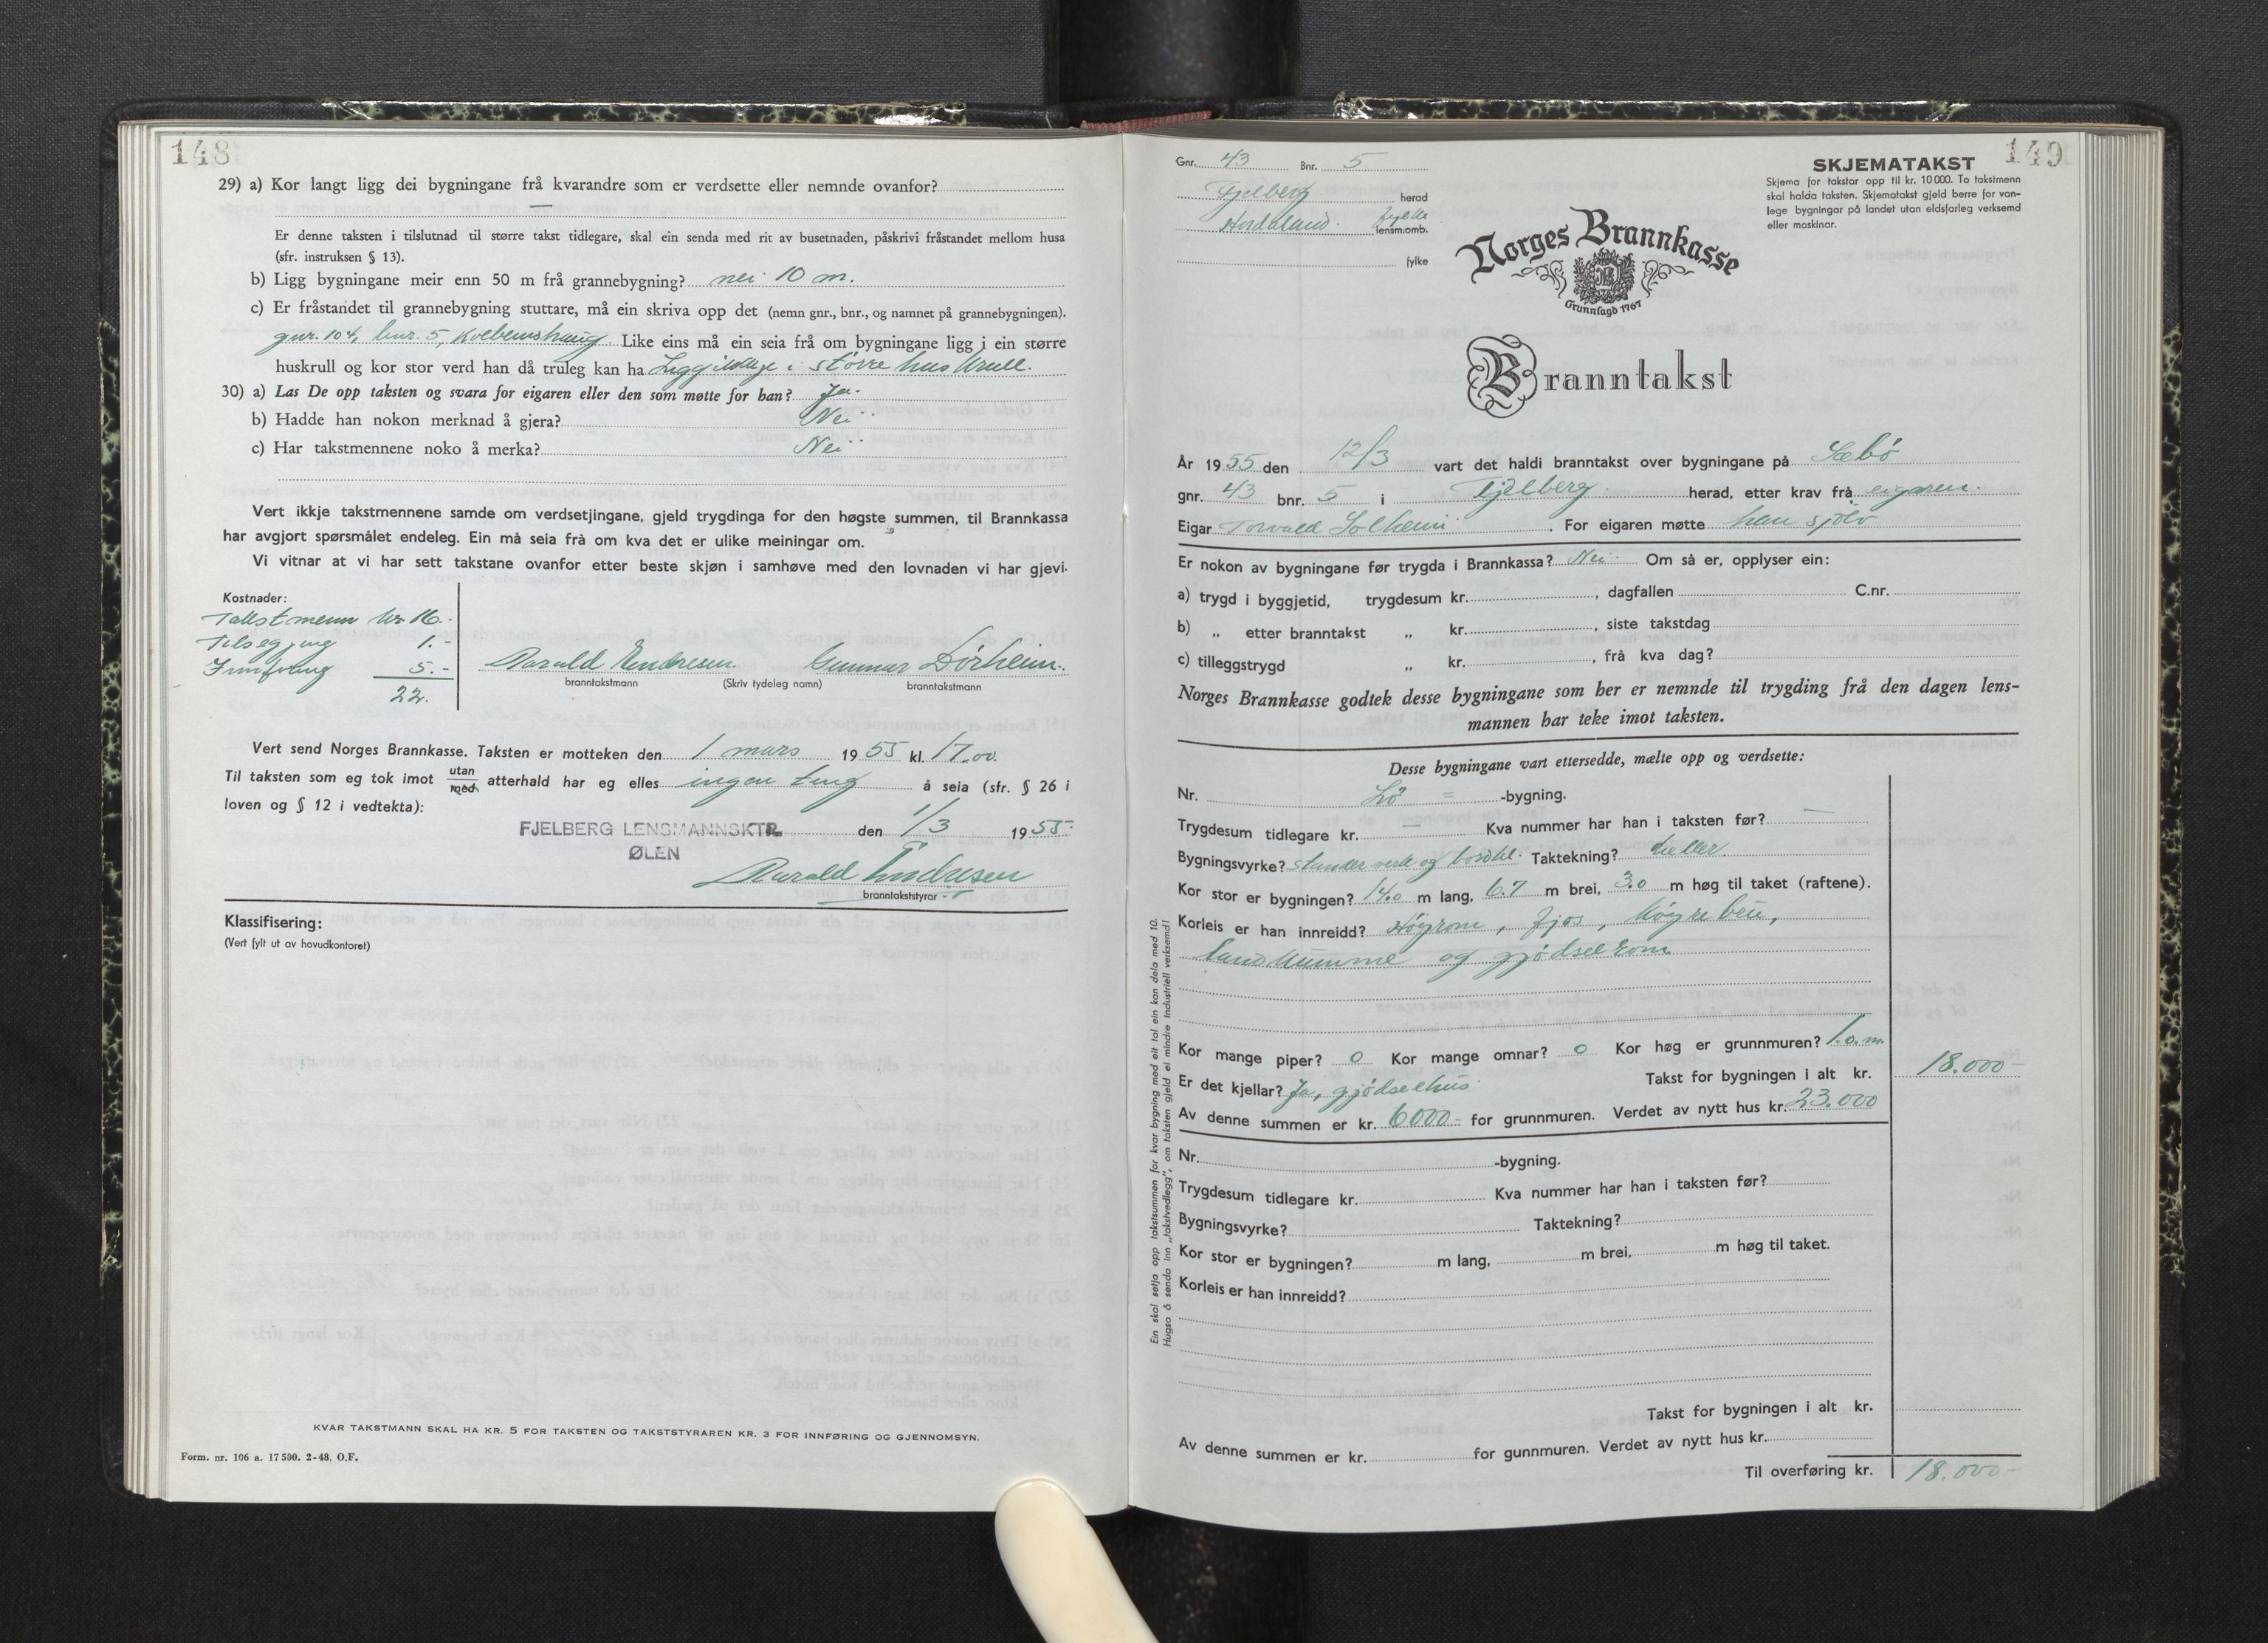 148
29) a) Kor langt ligg dei bygningane frå kvarandre som er verdsette eller nemnde ovanfor?
—
Er denne taksten i tilslutnad til større takst tidlegare, skal ein senda med rit av busetnaden, påskrivi fråstandet mellom husa
(sfr. instruksen § 13).
b) Ligg bygningane meir enn 50 m frå grannebygning? nei 10 m.
c) Er fråstandet til grannebygning stuttare, må ein skriva opp det (nemn gnr., bnr., og namnet på grannebygningen).
gnr. 104, bnr. 5, Like eins må ein seia frå om bygningane ligg i ein større
huskrull og kor stor verd han då truleg kan ha Ligg ikkje i större huskrull.
30) a) Las De opp taksten og svara for eigaren eller den som møtte for han? Ja.
b) Hadde han nokon merknad å gjera? Nei
c) Har takstmennene noko å merka? Nei
Vert ikkje takstmennene samde om verdsetjingane, gjeld trygdinga for den høgste summen, til Brannkassa
har avgjort spørsmålet endeleg. Ein må seia frå om kva det er ulike meiningar om.
Vi vitnar at vi har sett takstane ovanfor etter beste skjøn i samhøve med den lovnaden vi har gjevi.
Kostnader:
Takstmenn kr 16.-
Tilsegjing 1.-
Innföring 5.-
22.
Harald Endresen Gunnar Dörheim.
branntakstmann (Skriv tydeleg namn) branntakstmann
Vert send Norges Brannkasse. Taksten er motteken den 1 mars 1955 kl. 17.00.
Til taksten som eg tok imot utan/med atterhald har eg elles ingen ting å seia (sfr. § 26 i
loven og § 12 i vedtekta):
FJELBERG LENSMANNSKTR. den 1/3 1955-
ØLEN
Harald Endresen
branntakststyrar
Klassifisering:
(Vert fylt ut av hovudkontoret)
KVAR TAKSTMANN SKAL HA KR. 5 FOR TAKSTEN OG TAKSTSTYRAREN KR. 3 FOR INNFØRING OG GJENNOMSYN.
Form. nr. 106 a. 17 500. 2-48. O.F.
149
Gnr. 43 Bnr. 5
Fjelberg herad
Hordaland fylke lensm.omb.
fylke
SKJEMATAKST
Skjema for takstar opp til kr. 10 000. To takstmenn
skal halda taksten. Skjematakst gjeld berre for van-
lege bygningar på landet utan eldsfarleg verksemd
eller maskinar.
Norges Brannkasse
Grunnlagd 1767
Branntakst
År 1955 den 12/3 vart det haldi branntakst over bygningane på Sæbö
gnr. 43 bnr. 5 i Fjelberg herad, etter krav frå eigaren.
Eigar Torvald Solheim. For eigaren møtte han sjölv
Er nokon av bygningane før trygda i Brannkassa? Nei Om så er, opplyser ein:
a) trygd i byggjetid, trygdesum kr. , dagfallen C.nr.
b) „ etter branntakst „ kr. , siste takstdag
c) tilleggstrygd „ kr. , frå kva dag?
Norges Brannkasse godtek desse bygningane som her er nemnde til trygding frå den dagen lens-
mannen har teke imot taksten.
Desse bygningane vart ettersedde, mælte opp og verdsette:
Nr. Lö = -bygning.
Trygdesum tidlegare kr. — Kva nummer har han i taksten før? —
Bygningsvyrke? stenderverk og bordkl. Taktekning? heller.
Kor stor er bygningen? 14.0 m lang, 6.7 m brei, 3.0 m høg til taket (raftene).
Korleis er han innreidd? Höyrom, fjos,
landkumme og gjödselrom
Kor mange piper? 0 Kor mange omnar? 0 Kor høg er grunnmuren? 1.0. m
Er det kjellar? Ja, gjödselhus Takst for bygningen i alt kr. 18.000-
Av denne summen er kr. 6000- for grunnmuren. Verdet av nytt hus kr. 23.000
Nr. -bygning.
Trygdesum tidlegare kr. Kva nummer har han i taksten før?
Bygningsvyrke? Taktekning?
Kor stor er bygningen? m lang, m brei, m høg til taket.
Korleis er han innreidd?
Takst for bygningen i alt kr.
Av denne summen er kr. for gunnmuren. Verdet av nytt hus kr.
Til overføring kr. 18.000-
Ein skal setja opp takstsummen for kvar bygning med eit tal ein kan dela med 10.
Hugsa å senda inn „takstvedlegg", om taksten gjeld ei mindre industriell verksemd!